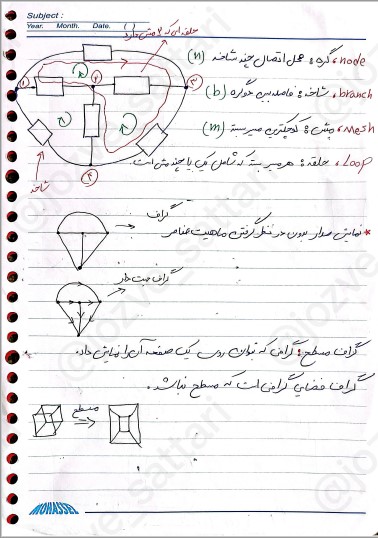 Subject :
Year. Month. Date. ( )
حلقه‌ای که ۲ مش دارد
node، گره : محل اتصال چند شاخه (n)
branch، شاخه : فاصله بین دو گره (b)
Mesh، مش : کوچکترین مسیر بسته (m)
Loop، حلقه : هر مسیر بسته که شامل یک یا چند مش است.
شاخه
گراف
* نمایش مدار بدون در نظر گرفتن ماهیت عناصر
گراف جهت دار
گراف مسطح : گرافی که بتوان روی یک صفحه آن را نمایش داد.
گراف فضایی گرافی است که مسطح نباشد.
مسطح
MOHASSEL
@jozve_sattari